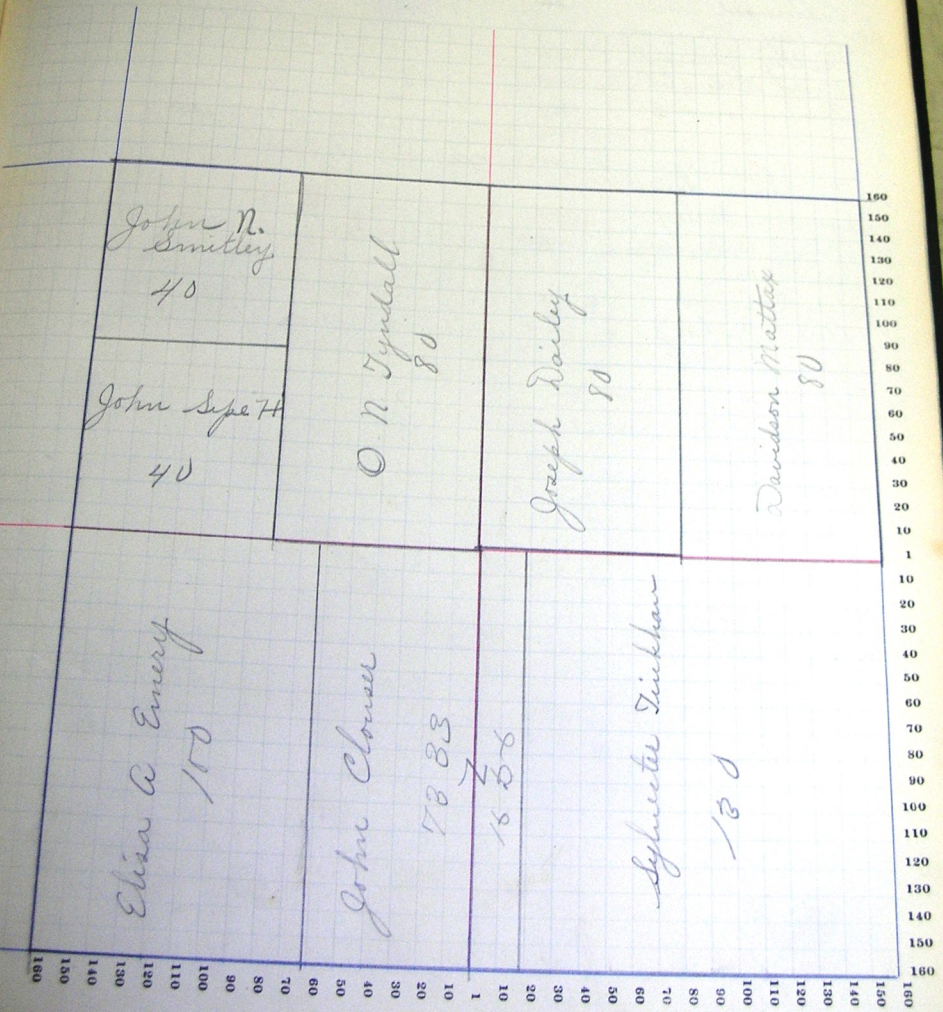 John N.
Smitley
40
John Sipe H
40
O. N. Tyndall
80
Joseph Dailey
80
Davidson Mattax
80
Elisa A Emery
100
John Clouser
Sylvester Tinkham
130
160
150
140
130
120
110
100
90
80
70
60
50
40
30
20
10
1
10
20
30
40
50
60
70
80
90
100
110
120
130
140
150
160
160
150
140
130
120
110
100
90
80
70
60
50
40
30
20
10
1
10
20
30
40
50
60
70
80
90
100
110
120
130
140
150
160